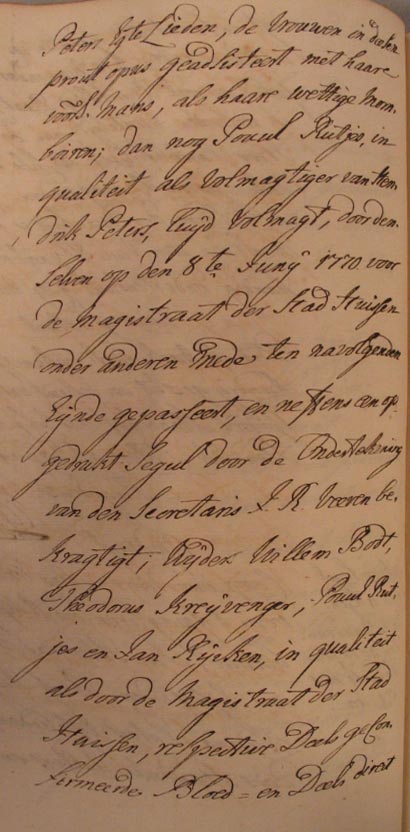 Peters Egte Lieden, de Vrouwen in deesen
prout opus geadsisteert met haare
voors. mans, als haare wettige mom-
boiren; dan nog Pouul Rutjes, in
qualiteit als Volmagtiger van Hen-
drik Peters, Luijd Volmagt, door den-
selven op den 8te Junij 1770 voor
de magistraat der Stad Huissen
onder anderen mede ten navolgenden
Eijnde gepasseert, en neffens een op-
gedrukt Segul door de Ondertekening
van den Secretaris J. R. Veeren be-
kragtigt; Wijders Willem Bodt,
Theodorus Kreijvenger, Pouul Rut-
jes en Jan Rijcken, in qualiteit
als door de magistraat der Stad
Huissen, respective Deels gecon-
firmeerde Bloed- en Deels direct